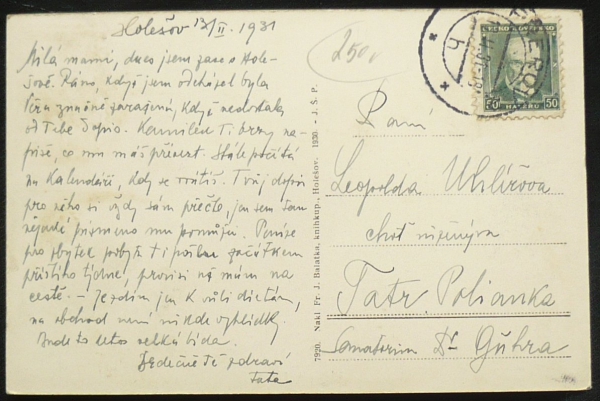 Holešov 13/II. 1931
Milá mami, dnes jsem zase v Hole-
šově. Ráno, když jsem odcházel byla
Věra značně zaražená, když nedostala
od Tebe dopis. Kamilek Ti brzy na-
píše, co mu máš přivézt. Stále počítá
na kalendáři, kdy se vrátíš. Tvůj dopis
pro něho si vždy sám přečte, jen sem tam
nějaké písmeno mu pomůžu. Peníze
pro zbytek pobytu Ti pošlu začátkem
příštího týdne, provisi až mám na
cestě. - Jezdím jen k vůli dietám,
na obchod není nikde vyhlídky.
Bude to letos velká bída.
Srdečně Tě zdraví
Tata
250,-
7920. Nákl. Fr. J. Balatka, knihkup., Holešov. 1930. - J. Š. P.
ČESKOSLOVENSKO
50 HALÉŘŮ 50
Paní
Leopolda Uhlířova
choť inženýra
Tatr. Polianka
Sanatorium Dr Gühra